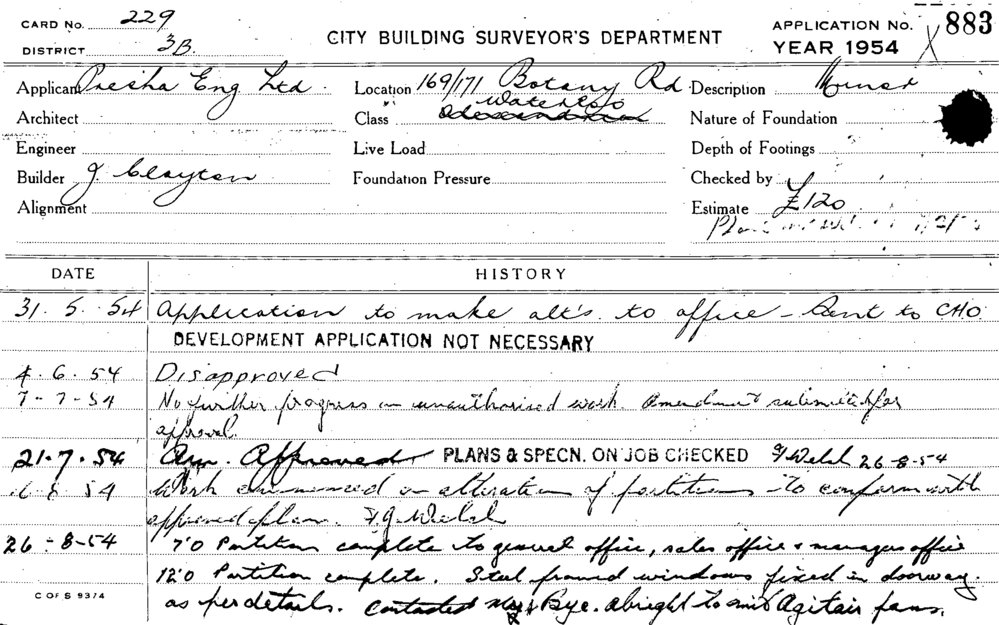 CARD No. 229
DISTRICT 3B.
CITY BUILDING SURVEYOR'S DEPARTMENT
APPLICATION No. 883
YEAR 1954
Applicant Presha Eng Ltd. Location 169/171 Botany Rd Description Minor
Waterloo
Architect Class Alexandria Nature of Foundation
Engineer Live Load Depth of Footings
Builder J. Clayton Foundation Pressure Checked by
Alignment Estimate £120
DATE HISTORY
31.5.54 Application to make alt's. to office - Sent to CHO
DEVELOPMENT APPLICATION NOT NECESSARY
4.6.54 Disapproved
7-7-54 No further progress on unauthorised work. Amendment submitted for
approval.
21.7.54 Am. Approved PLANS & SPECN. ON JOB CHECKED Welsh 26-8-54
8 54 Work commenced on alteration of partitions to conform with
approved plan. Welsh
26-8-54 7'0 Partition complete to general office, sales office & managers office
12'0 Partition complete. Steel framed windows fixed in doorway.
as per details. Contacted Mr Bye. alright to omit Agitair fans.
C OF S 9374